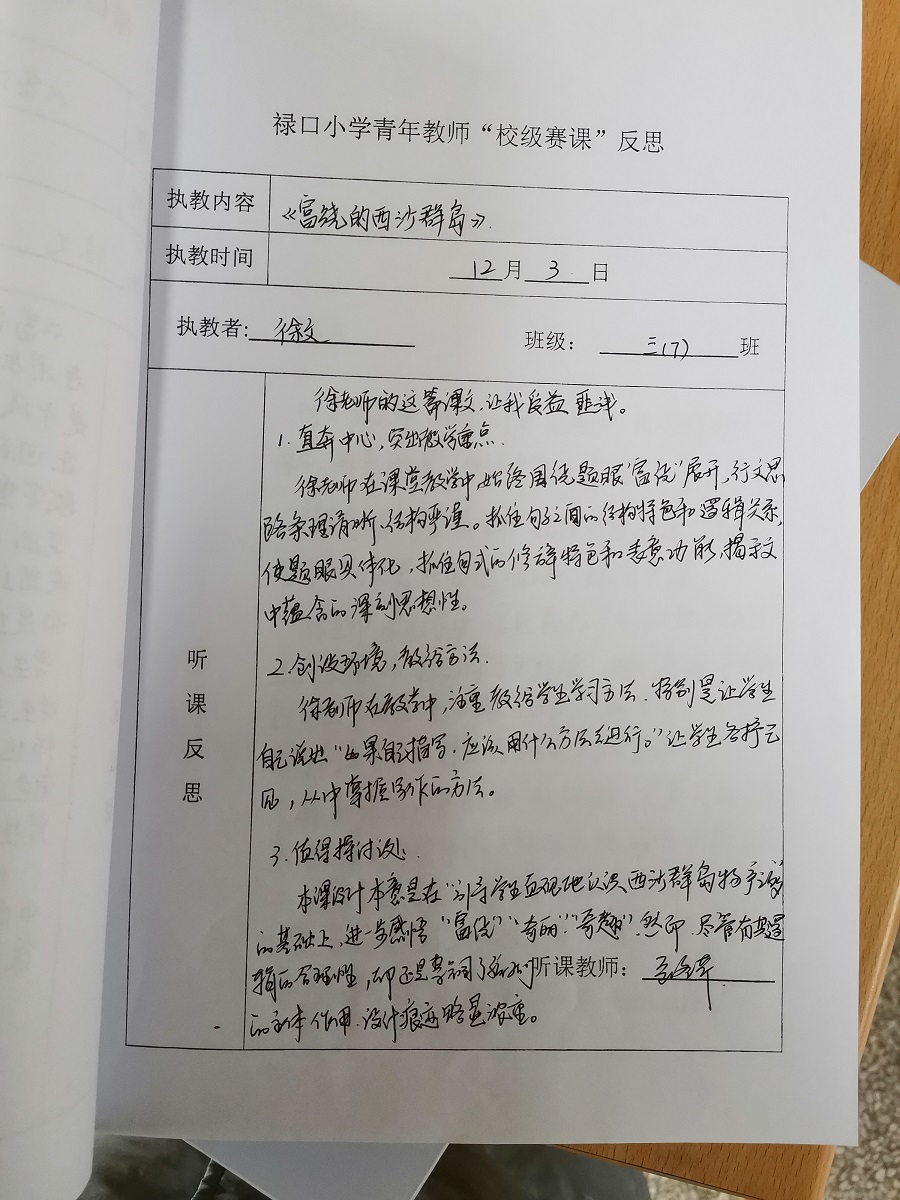 禄口小学青年教师“校级赛课”反思
执教内容 《富饶的西沙群岛》.
执教时间 12月3日
执教者: 徐文 班级： 三(7) 班
听课反思
徐老师的这篇课文,让我受益匪浅。
1.直奔中心,突出教学重点.
徐老师在课堂教学中,始终围绕题眼“富饶”展开,行文思
路条理清晰、结构严谨。抓住句子之间的结构特色和逻辑关系,
使题眼具体化,抓住句式的修辞特色和表意功能,揭示文
中蕴含的深刻思想性。
2.创设环境,教给方法.
徐老师在教学中,注重教给学生学习方法.特别是让学生
自己说出“如果自己描写.应该用什么方法去进行。”让学生各抒己
见,从中掌握写作的方法。
3.值得探讨
本课设计本意是在“引导学生直观地认识西沙群岛物产
的基础上,进一步感悟“富饶”“奇丽”“奇趣”.然而.尽管有其逻
辑的合理性,却还是 了 听课教师：
的主体作用.设计痕迹略显浓重。